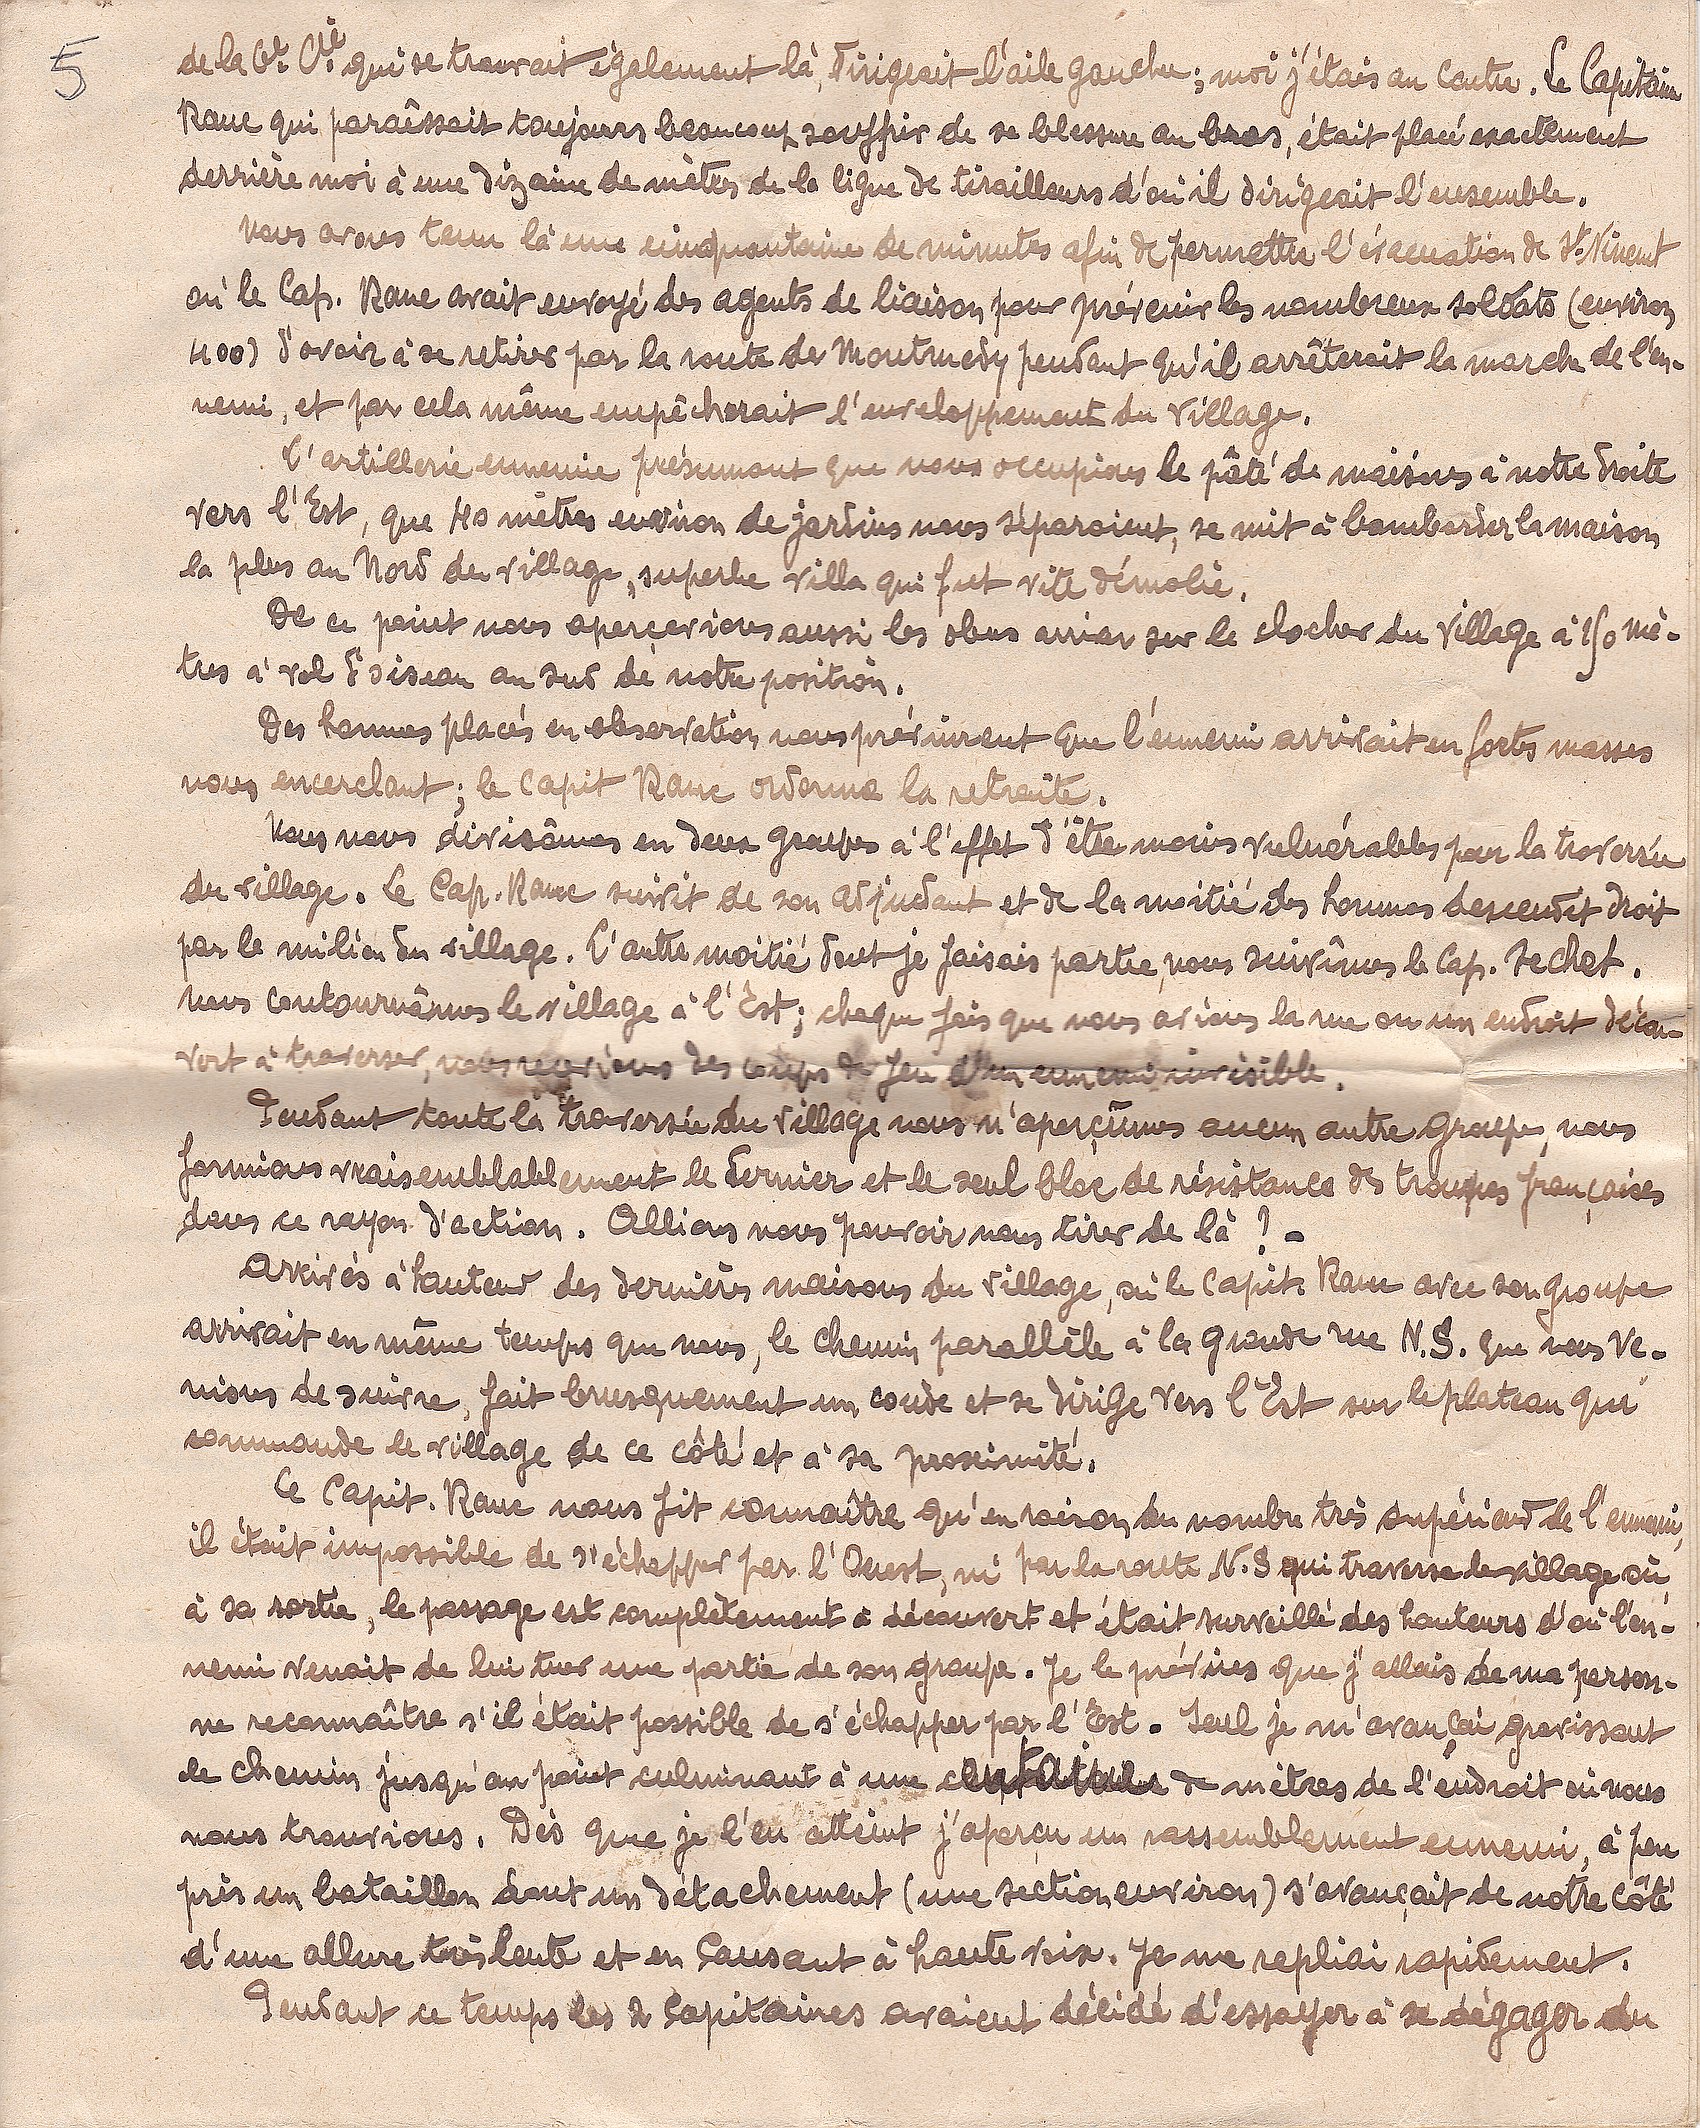 5
de la 6e Cie qui se trouvait également là, dirigeait l'aile gauche; moi j'étais au centre. Le Capitaine
Ranc qui paraîssait toujours beaucoup souffrir de sa blessure au bras, était placé exactement
derrière moi à une dizaine de mètres de la ligne de tirailleurs d'où il dirigeait l'ensemble.
Nous avons tenu là une cinquantaine de minutes afin de permettre l'évacuation de St. Vincent
où le Cap. Ranc avait envoyé des agents de liaison pour prévenir les nombreux soldats (environ
400) d'avoir à se retirer par la route de Montmédy pendant qu'il arrêterait la marche de l'en-
nemi, et par cela même empêcherait l'enveloppement du village.
L'artillerie ennemie présumant que nous occupions le pâté de maisons à notre droite
vers l'Est, que 40 mètres environ de jardins nous séparaient, se mit à bombarder la maison
la plus au Nord du village, superbe villa qui fut vite démolie.
De ce point nous apercevions aussi les obus arriver sur le clocher du village à 150 mè-
tres à vol d'oiseau au sud de notre position.
Des hommes placés en observation nous prévinrent que l'ennemi arrivait en fortes masses
nous encerclant; le Capit Ranc ordonna la retraite.
Nous nous divisâmes en deux groupes à l'effet d'être moins vulnérables pour la traversée
du village. Le Cap. Ranc suivit de son adjudant et de la moitié des hommes descendit droit
par le milieu du village. L'autre moitié dont je faisais partie, nous suivîmes le Cap. Sechet.
Nous contournâmes le village à l'Est; chaque fois que nous avions la rue ou un endroit décou-
vert à traverser, nous recevions des coups de feu d'un ennemi invisible.
Pendant toute la traversée du village nous n'aperçûmes aucun autre groupe, nous
formions vraisemblablement le dernier et le seul bloc de résistance des troupes françaises
dans ce rayon d'action. Allions nous pouvoir nous tirer de là ? -
Arrivés à hauteur des dernières maisons du village, où le Capit. Ranc avec son groupe
arrivait en même temps que nous, le chemin parallèle à la grande rue N.S. que nous ve-
nions de suivre, fait brusquement un coude et se dirige vers l'Est sur le plateau qui
commande le village de ce côté et à sa proximité.
Le Capit. Ranc nous fit connaître qu'en raison du nombre très supérieur de l'ennemi,
il était impossible de s'échapper par l'Ouest, ni par la route N.S qui traverse le village où,
à sa sortie, le passage est complètement à découvert et était surveillé des hauteurs d'où l'en-
nemi venait de lui tuer une partie de son groupe. Je le prévins que j'allais de ma person-
ne reconnaître s'il était possible de s'échapper par l'Est. Seul je m'avançai gravissant
le chemin jusqu'au point culminant à une centaine de mètres de l'endroit où nous
nous trouvions. Dès que je l'eu atteint j'aperçu un rassemblement ennemi, à peu
près un bataillon dont un détachement (une section environ) s'avançait de notre côté
d'une allure très lente et en causant à haute voix. Je me repliai rapidement.
Pendant ce temps les 2 Capitaines avaient décidé d'essayer à se dégager du